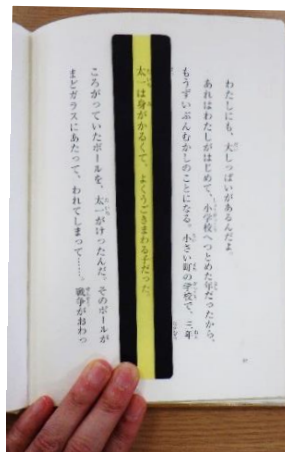 わたしにも、大しっぱいがあるんだよ。
あれはわたしがはじめて、小学校へつとめた年だったから、
もうずいぶんむかしのことになる。小さい町の学校で、三年
太一は身がかるくて、よくうごきまわる子だった。
ころがっていたボールを、太一がけったんだ。そのボールが
まどガラスにあたって、われてしまって……。戦争がおわっ